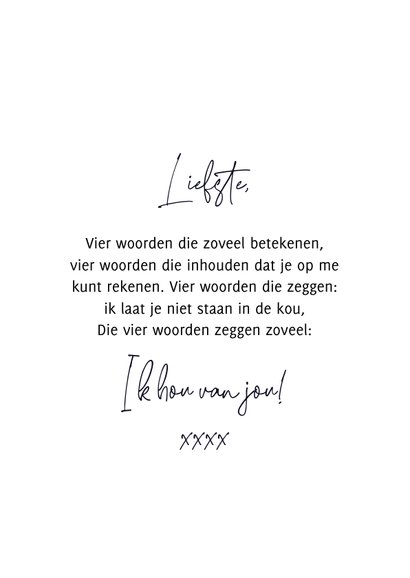 Liefste,
Vier woorden die zoveel betekenen,
vier woorden die inhouden dat je op me
kunt rekenen. Vier woorden die zeggen:
ik laat je niet staan in de kou,
Die vier woorden zeggen zoveel:
Ik hou van jou!
xxxx